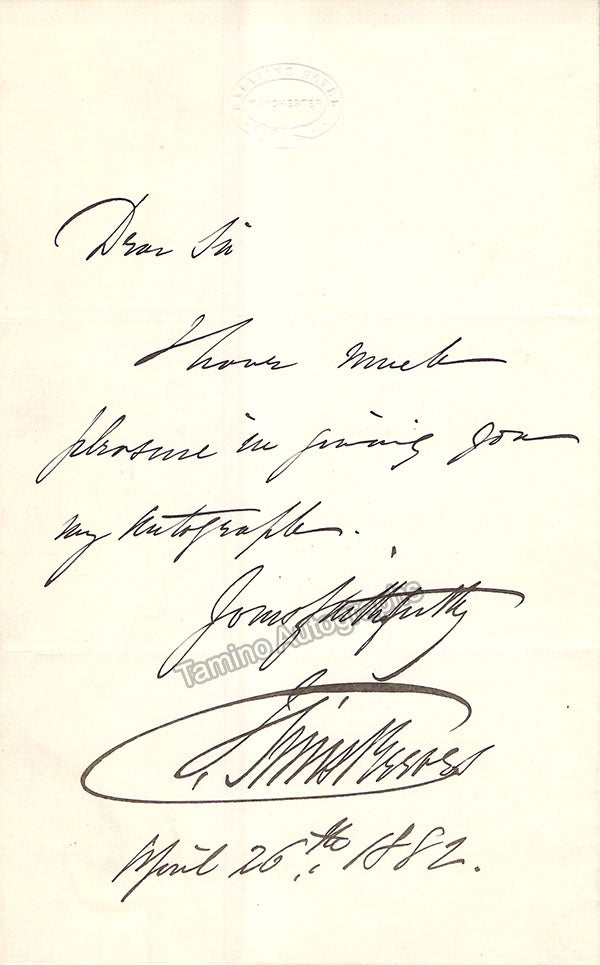 PALATINE HOTEL
MANCHESTER
Dear Sir
I have much
pleasure in giving you
my Autograph.
Yours faithfully
Tamino Autographs
J. Sims Reeves
April 26th. 1882.